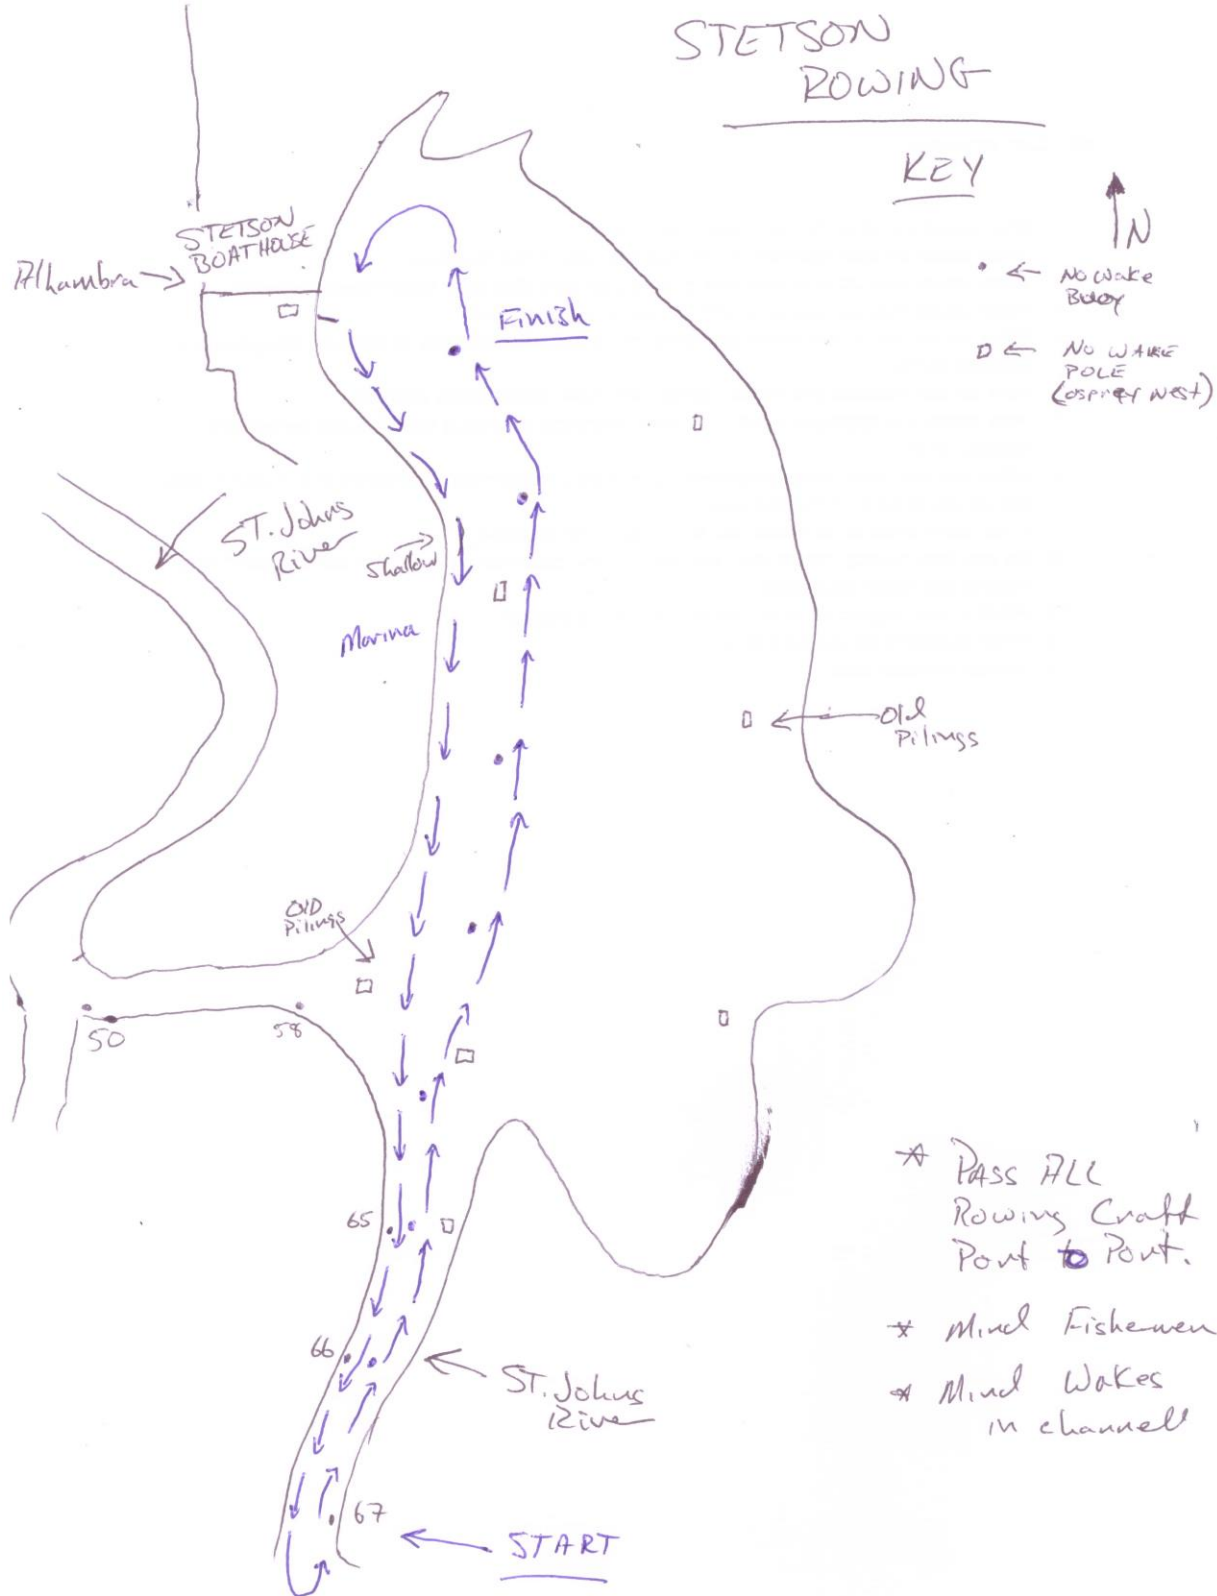 STETSON
ROWING
KEY
N
No wake
Buoy
NO WAKE
POLE
(osprey nest)
STETSON
BOATHOUSE
Alhambra
Finish
ST. Johns
River
Shallow
Marina
Old
Pilings
OLD
Pilings
50
58
65
66
67
ST. Johns
River
START
* PASS ALL
Rowing Craft
Port to Port.
* Mind Fishermen
* Mind Wakes
in channel